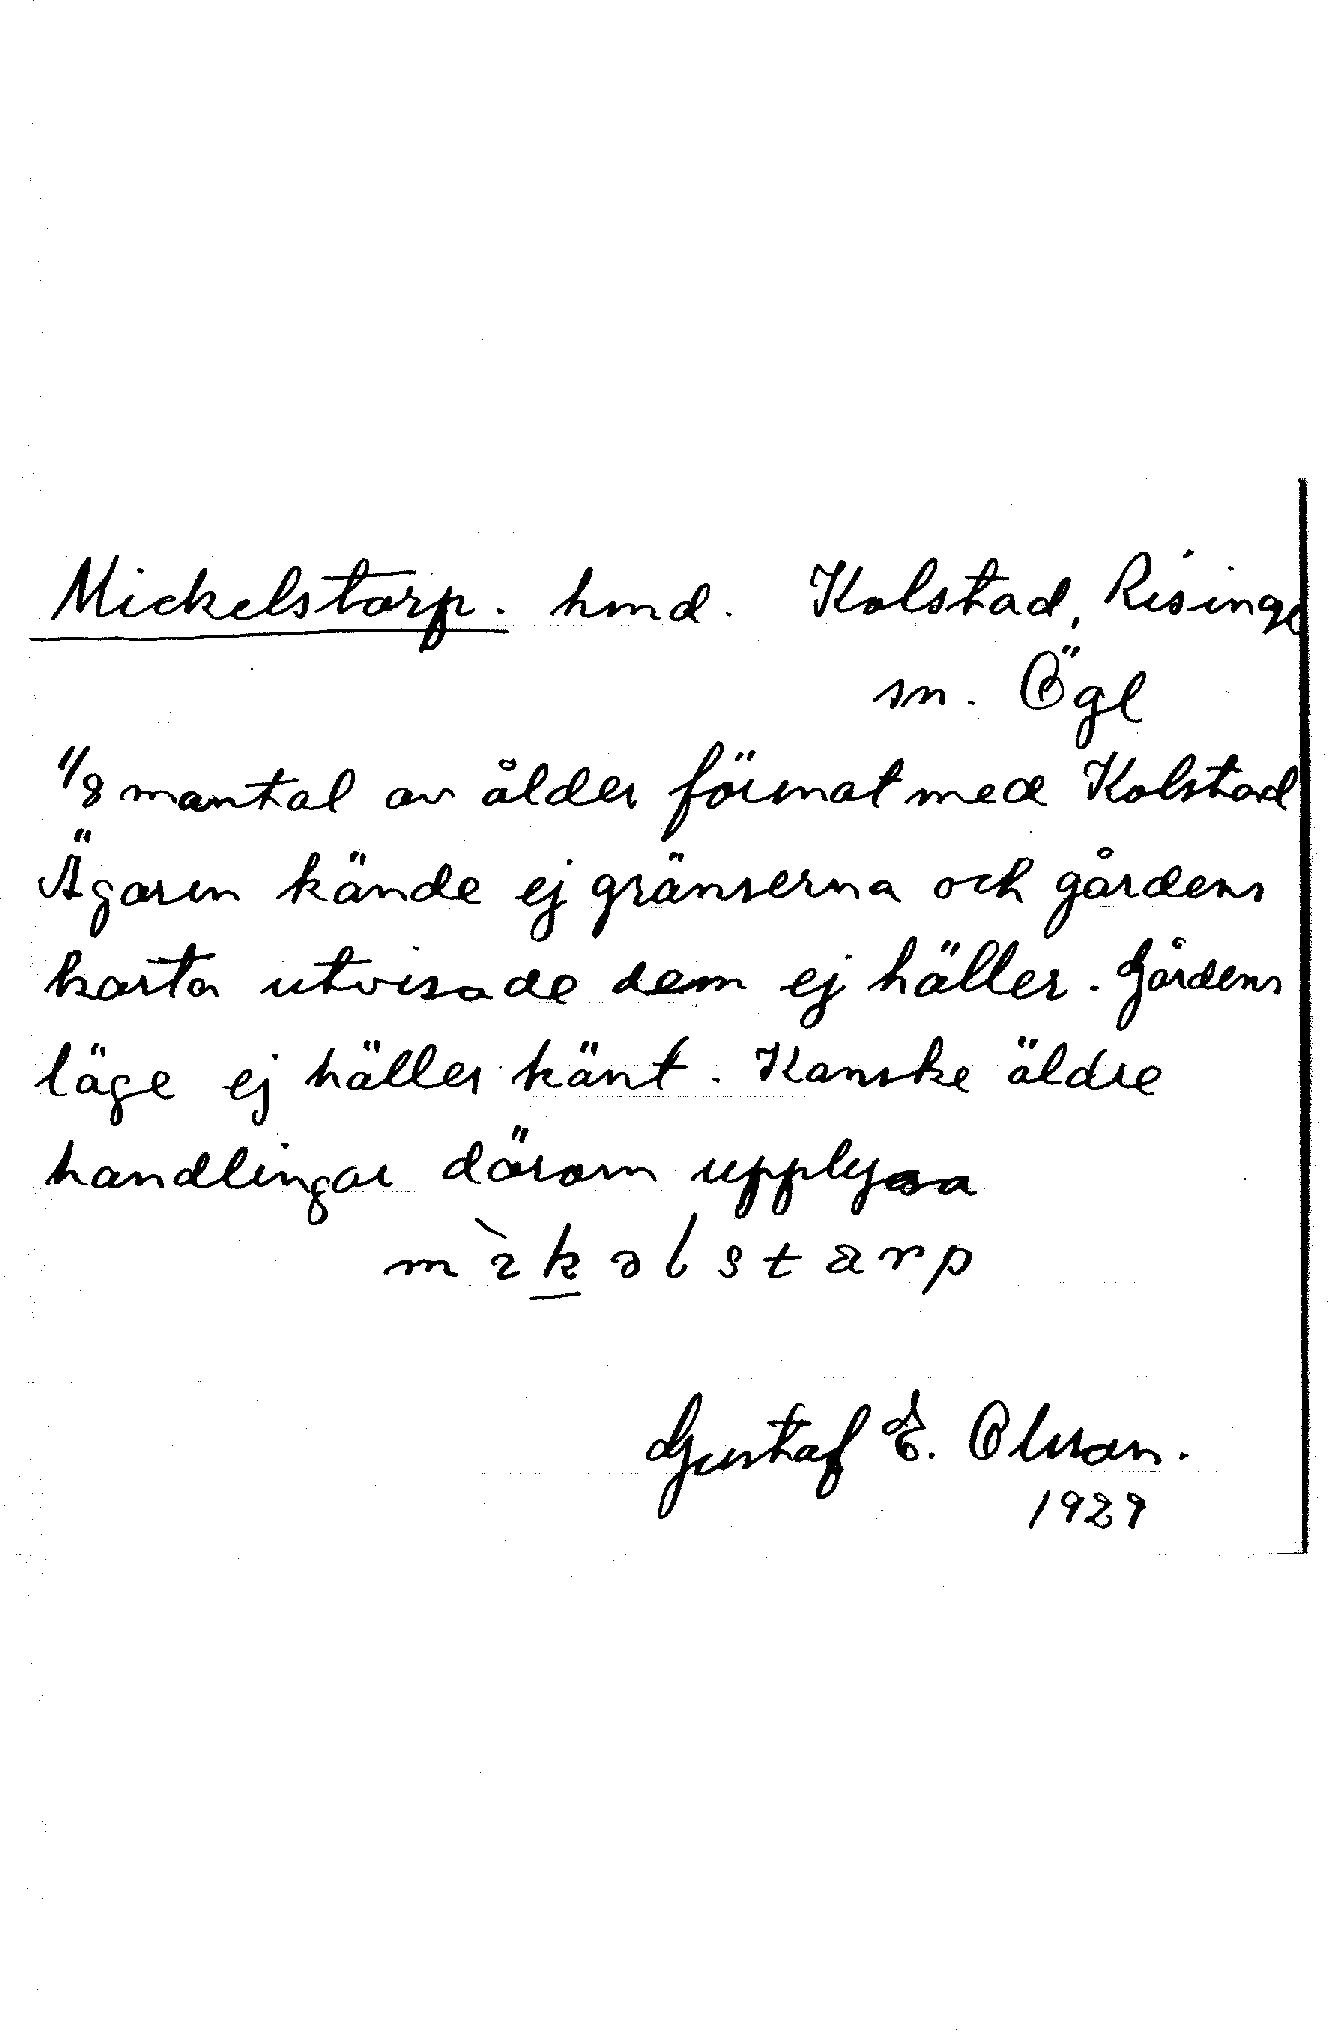 Mickelstorp. hmd. Kolstad, Risinge
sn. Ögl
1/8 mantal av ålder förenat med Kolstad
Ägaren kände ej gränserna och gårdens
karta utvisade dem ej häller. Gårdens
läge ej häller känt. Kanske äldre
handlingar därom upplysa
Gustaf E. Olsson.
1929